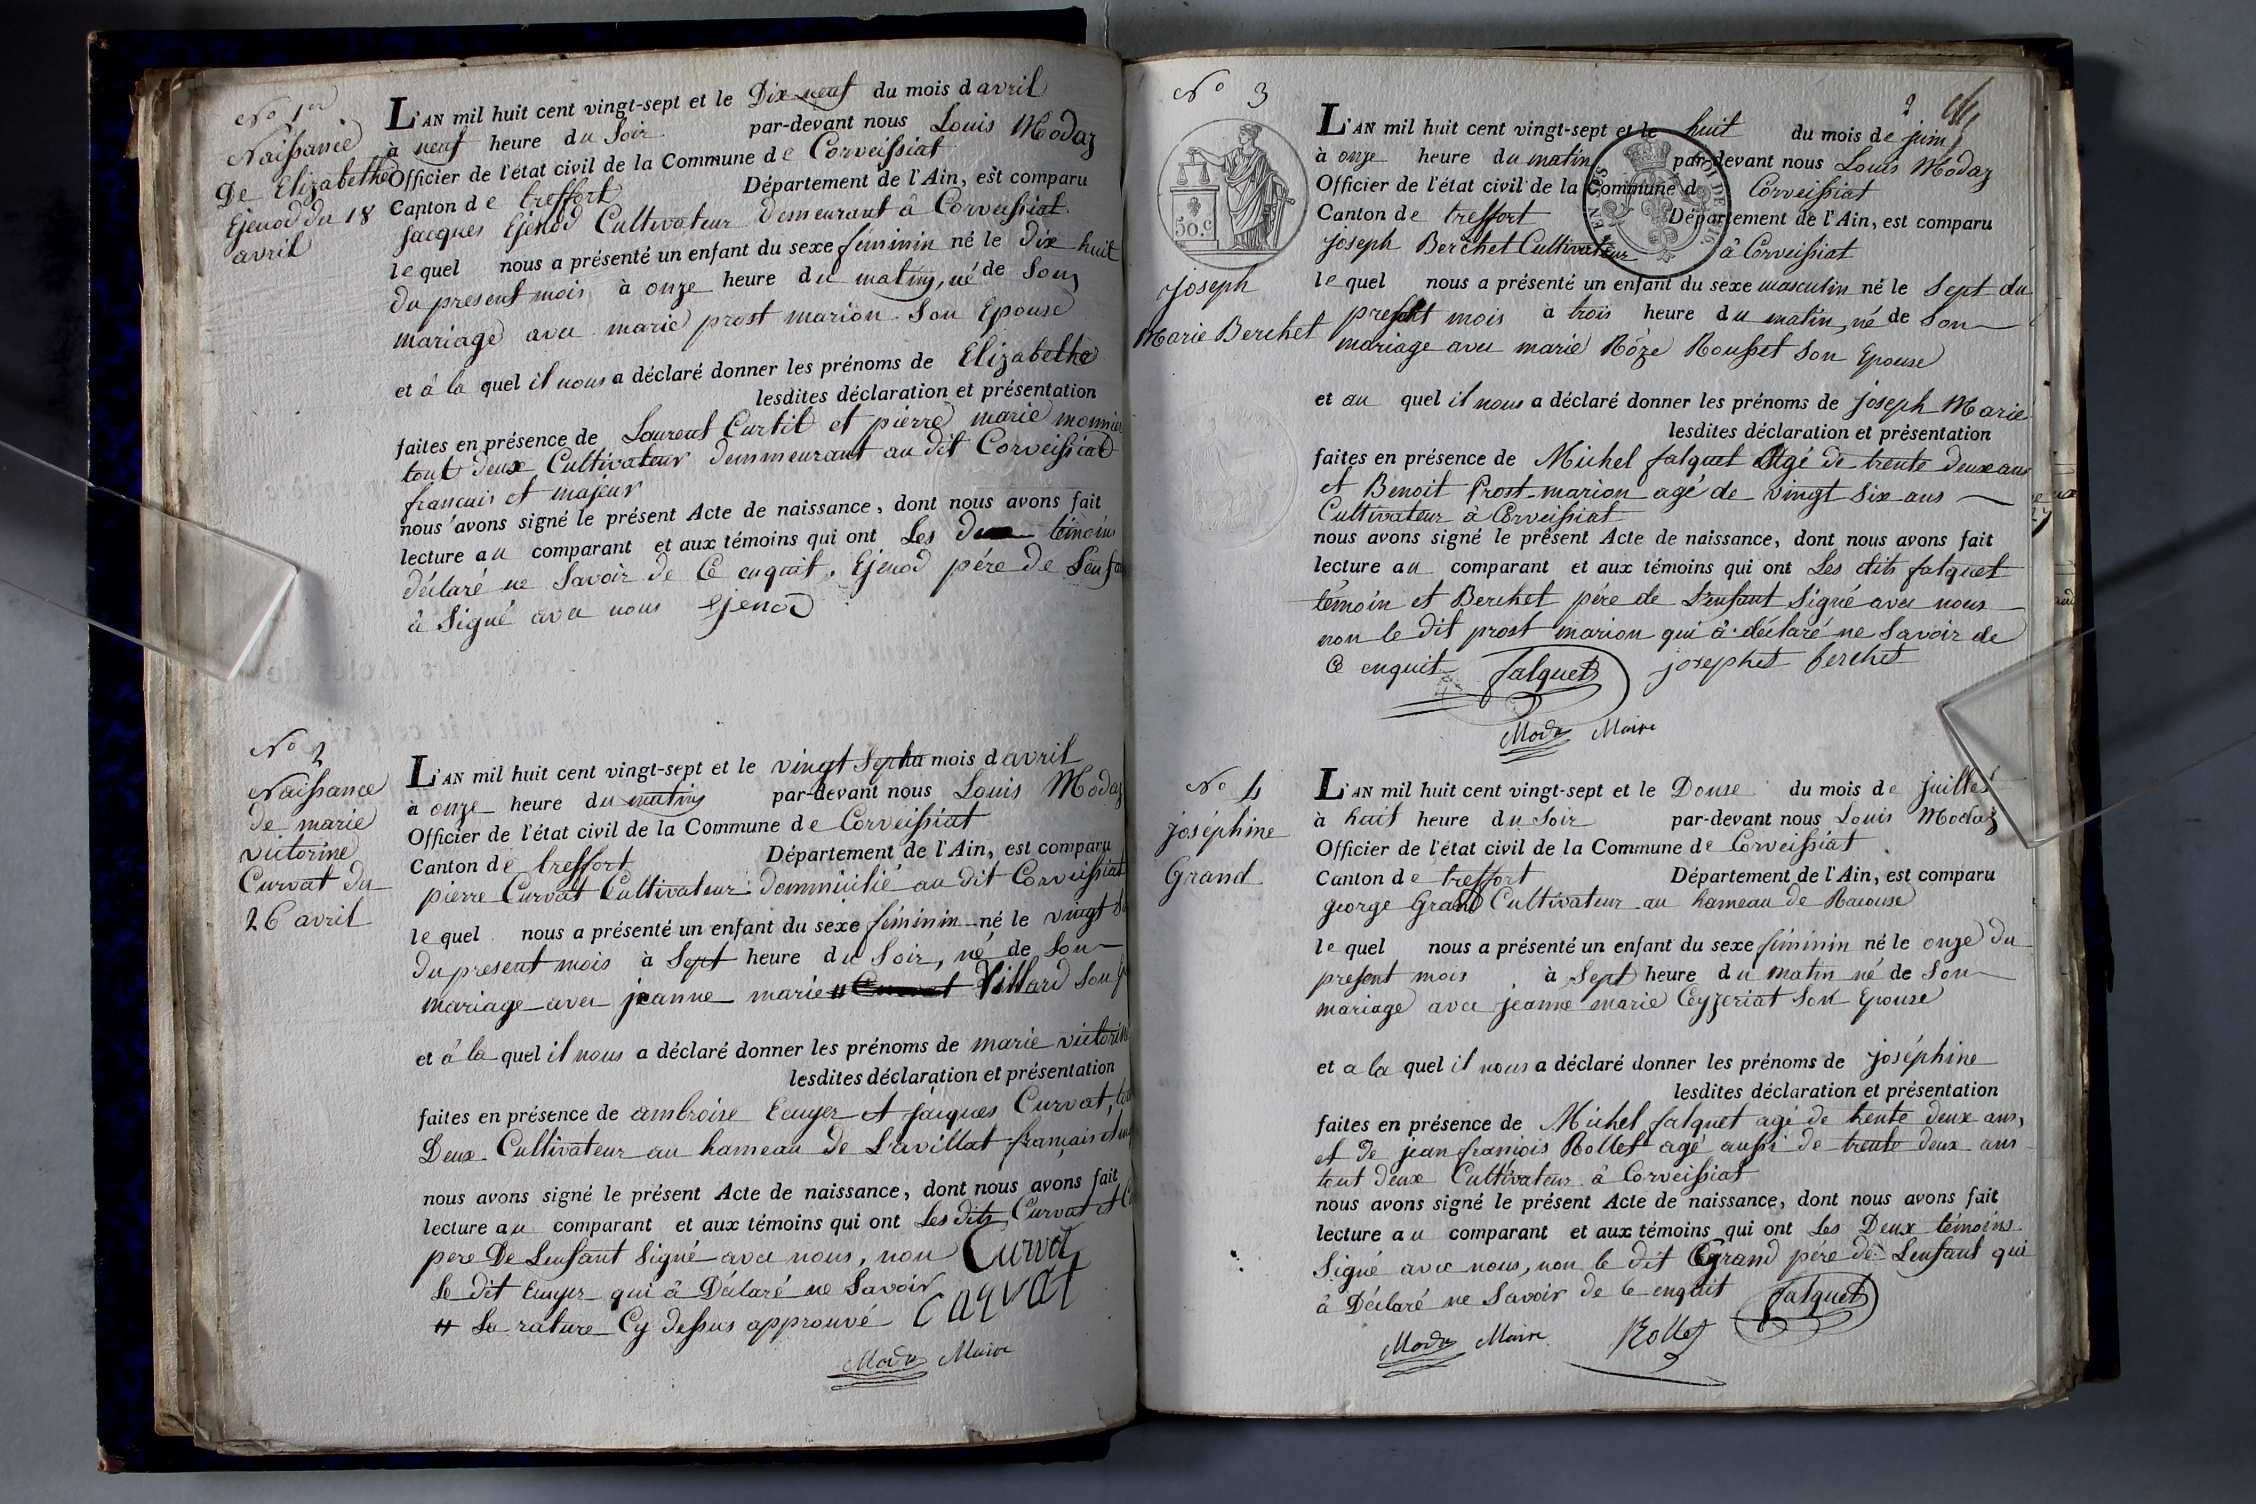 No 1er
Naissance
De Elizabethe
Ejenod du 18
avril
L'AN mil huit cent vingt-sept et le Dix neuf du mois d avril
à neuf heure du Soir par-devant nous Louis Modaz
Officier de l'état civil de la Commune de Corveissiat
Canton de treffort Département de l'Ain, est comparu
Jacques Ejenod Cultivateur demeurant à Corveissiat
le quel nous a présenté un enfant du sexe féminin né le dix huit
du present mois à onze heure du matin, né de Son
mariage avec marie prost marion Son Epouse
et à la quel il nous a déclaré donner les prénoms de Elizabethe
lesdites déclaration et présentation
faites en présence de Laurent Curtil et pierre marie monnier
tout deux Cultivateur demmeurant au dit Corveissiat
francais et majeur
nous avons signé le présent Acte de naissance, dont nous avons fait
lecture au comparant et aux témoins qui ont Les deux témoins
déclaré ne Savoir de Ce enquit. Ejenod pére de Lenfa
à Signé avec nous Ejenod
No 2
Naissance
de marie
victorine
Curvat du
26 avril
L'AN mil huit cent vingt-sept et le vingt Sept du mois d avril
à onze heure du matin par-devant nous Louis Modaz
Officier de l'état civil de la Commune de Corveissiat
Canton de treffort Département de l'Ain, est comparu
pierre Curvat Cultivateur dommicilié au dit Corveissiat
le quel nous a présenté un enfant du sexe féminin né le vingt
du present mois à Sept heure du Soir, né de Son
mariage avec jeanne marie Villard Son
et à la quel il nous a déclaré donner les prénoms de marie victorine
lesdites déclaration et présentation
faites en présence de ambroise Ecuyer et jacques Curvat,
Deux Cultivateur au hameau de Lavillat français et
nous avons signé le présent Acte de naissance, dont nous avons fait
lecture au comparant et aux témoins qui ont Les dits Curvat et
pere De Lenfant Signé avec nous, non Curvat
le dit Ecuyer qui à Déclaré ne Savoir
# La rature Cy dessus approuvé Caqvat
Modaz Maire
No 3
50.c
Joseph
Marie Berchet
2
L'AN mil huit cent vingt-sept et le huit du mois de juin
à onze heure du matin par-devant nous Louis Modaz
Officier de l'état civil de la Commune d Corveissiat
Canton de treffort Département de l'Ain, est comparu
joseph Berchet Cultivateur à Corveissiat
le quel nous a présenté un enfant du sexe masculin né le Sept du
present mois à trois heure du matin, né de Son
mariage avec marie Rôze Rousset Son Epouse
et au quel il nous a déclaré donner les prénoms de joseph Marie
lesdites déclaration et présentation
faites en présence de Michel falquet Agé de trente deux ans
et Benoit Prost-marion agé de vingt Six ans
Cultivateur à Corveissiat
nous avons signé le présent Acte de naissance, dont nous avons fait
lecture au comparant et aux témoins qui ont Les dits falquet
témoin et Berchet pére de Lenfant Signé avec nous
non le dit prost marion qui à déclaré ne Savoir de
Ce enquit falquet josephet berchet
Modaz Maire
No 4
joséphine
Grand
L'AN mil huit cent vingt-sept et le Douse du mois de juillet
à huit heure du Soir par-devant nous Louis Modaz
Officier de l'état civil de la Commune de Corveissiat
Canton de treffort Département de l'Ain, est comparu
george Grand Cultivateur au hameau de Racouse
le quel nous a présenté un enfant du sexe féminin né le onze du
present mois à Sept heure du matin né de Son
mariage avec jeanne marie Ceyzeriat Son Epouse
et a la quel il nous a déclaré donner les prénoms de joséphine
lesdites déclaration et présentation
faites en présence de Michel falquet agé de trente deux ans,
et de jean françois Rollet agé aussi de trente deux ans
tout deux Cultivateur à Corveissiat
nous avons signé le présent Acte de naissance, dont nous avons fait
lecture au comparant et aux témoins qui ont Les Deux témoins
Signé avec nous, non le dit Grand pére de Lenfant qui
à Déclaré ne Savoir de Ce enquit falquet
Modaz Maire Rollet